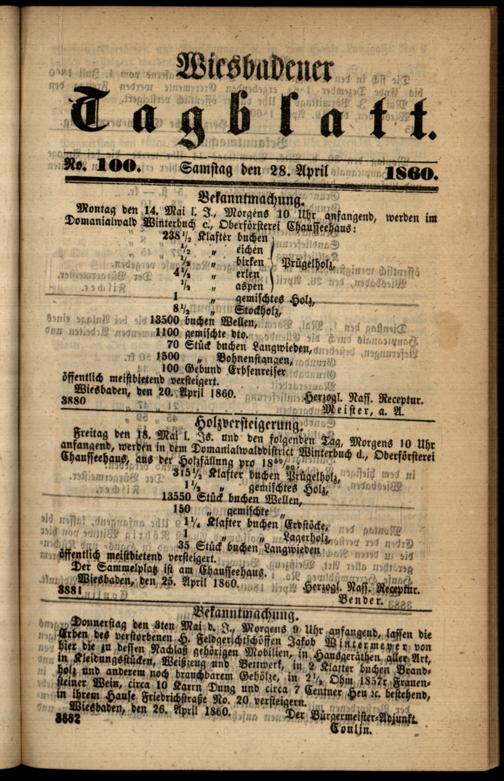 Wiesbadener
Tagblatt.
No. 100. Samstag den 28. April 1860.
Bekanntmachung.
Montag den 14. Mai l. J., Morgens 10 Uhr anfangend, werden im
Domanialwald Winterbuch c., Oberförsterei Chausseehaus:
238 1/2 Klafter buchen
1/2 „ eichen
3/4 „ birken } Prügelholz,
4 1/2 „ erlen
1/2 „ aspen
1 „ gemischtes Holz,
8 1/2 „ Stockholz,
13500 buchen Wellen,
1100 gemischte dto.
70 Stück buchen Langwieden,
1500 „ Bohnenstangen,
100 Gebund Erbsenreiser
öffentlich meistbietend versteigert.
Wiesbaden, den 20. April 1860. Herzogl. Nass. Receptur.
3880 Meister, a. A.
Holzversteigerung.
Freitag den 18. Mai l. Js. und den folgenden Tag, Morgens 10 Uhr
anfangend, werden in dem Domanialwalddistrict Winterbuch d., Oberförsterei
Chausseehaus, aus der Holzfällung pro 18 59/60:
315 1/2 Klafter buchen Prügelholz,
1 1/2 „ gemischtes Holz,
13550 Stück buchen Wellen,
150 „ gemischte „
1 1/4 Klafter buchen Erdstöcke,
1 „ „ Lagerholz,
35 Stück buchen Langwieden
öffentlich meistbietend versteigert.
Der Sammelplatz ist am Chausseehaus.
Wiesbaden, den 25. April 1860. Herzogl. Nass. Receptur.
3881 Bender.
Bekanntmachung.
Donnerstag den 3ten Mai d. J., Morgens 9 Uhr anfangend, lassen die
Erben des verstorbenen H. Feldgerichtschöffen Jakob Wintermeyer von
hier die zu dessen Nachlaß gehörigen Mobilien, in Hausgeräthen aller Art,
in Kleidungsstücken, Weißzeug und Bettwerk, in 2 Klafter buchen Brand-
holz und anderem noch brauchbarem Gehölze, in 2 1/2 Ohm 1857r Frauen-
steiner Wein, circa 10 Karrn Dung und circa 7 Centner Heu ꝛc. bestehend,
in ihrem Hause Friedrichstraße No. 20 versteigern.
Wiesbaden, den 26. April 1860. Der Bürgermeister-Adjunkt.
3882 Coulin.